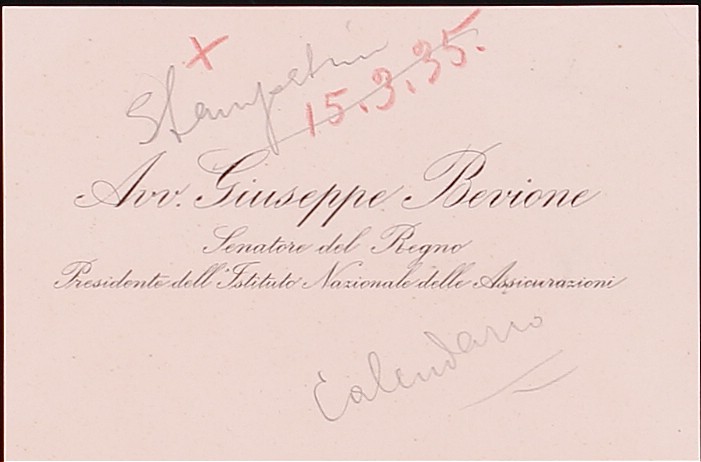 x
15.3.35.
Avv. Giuseppe Bevione
Senatore del Regno
Presidente dell'Istituto Nazionale delle Assicurazioni
Calendario